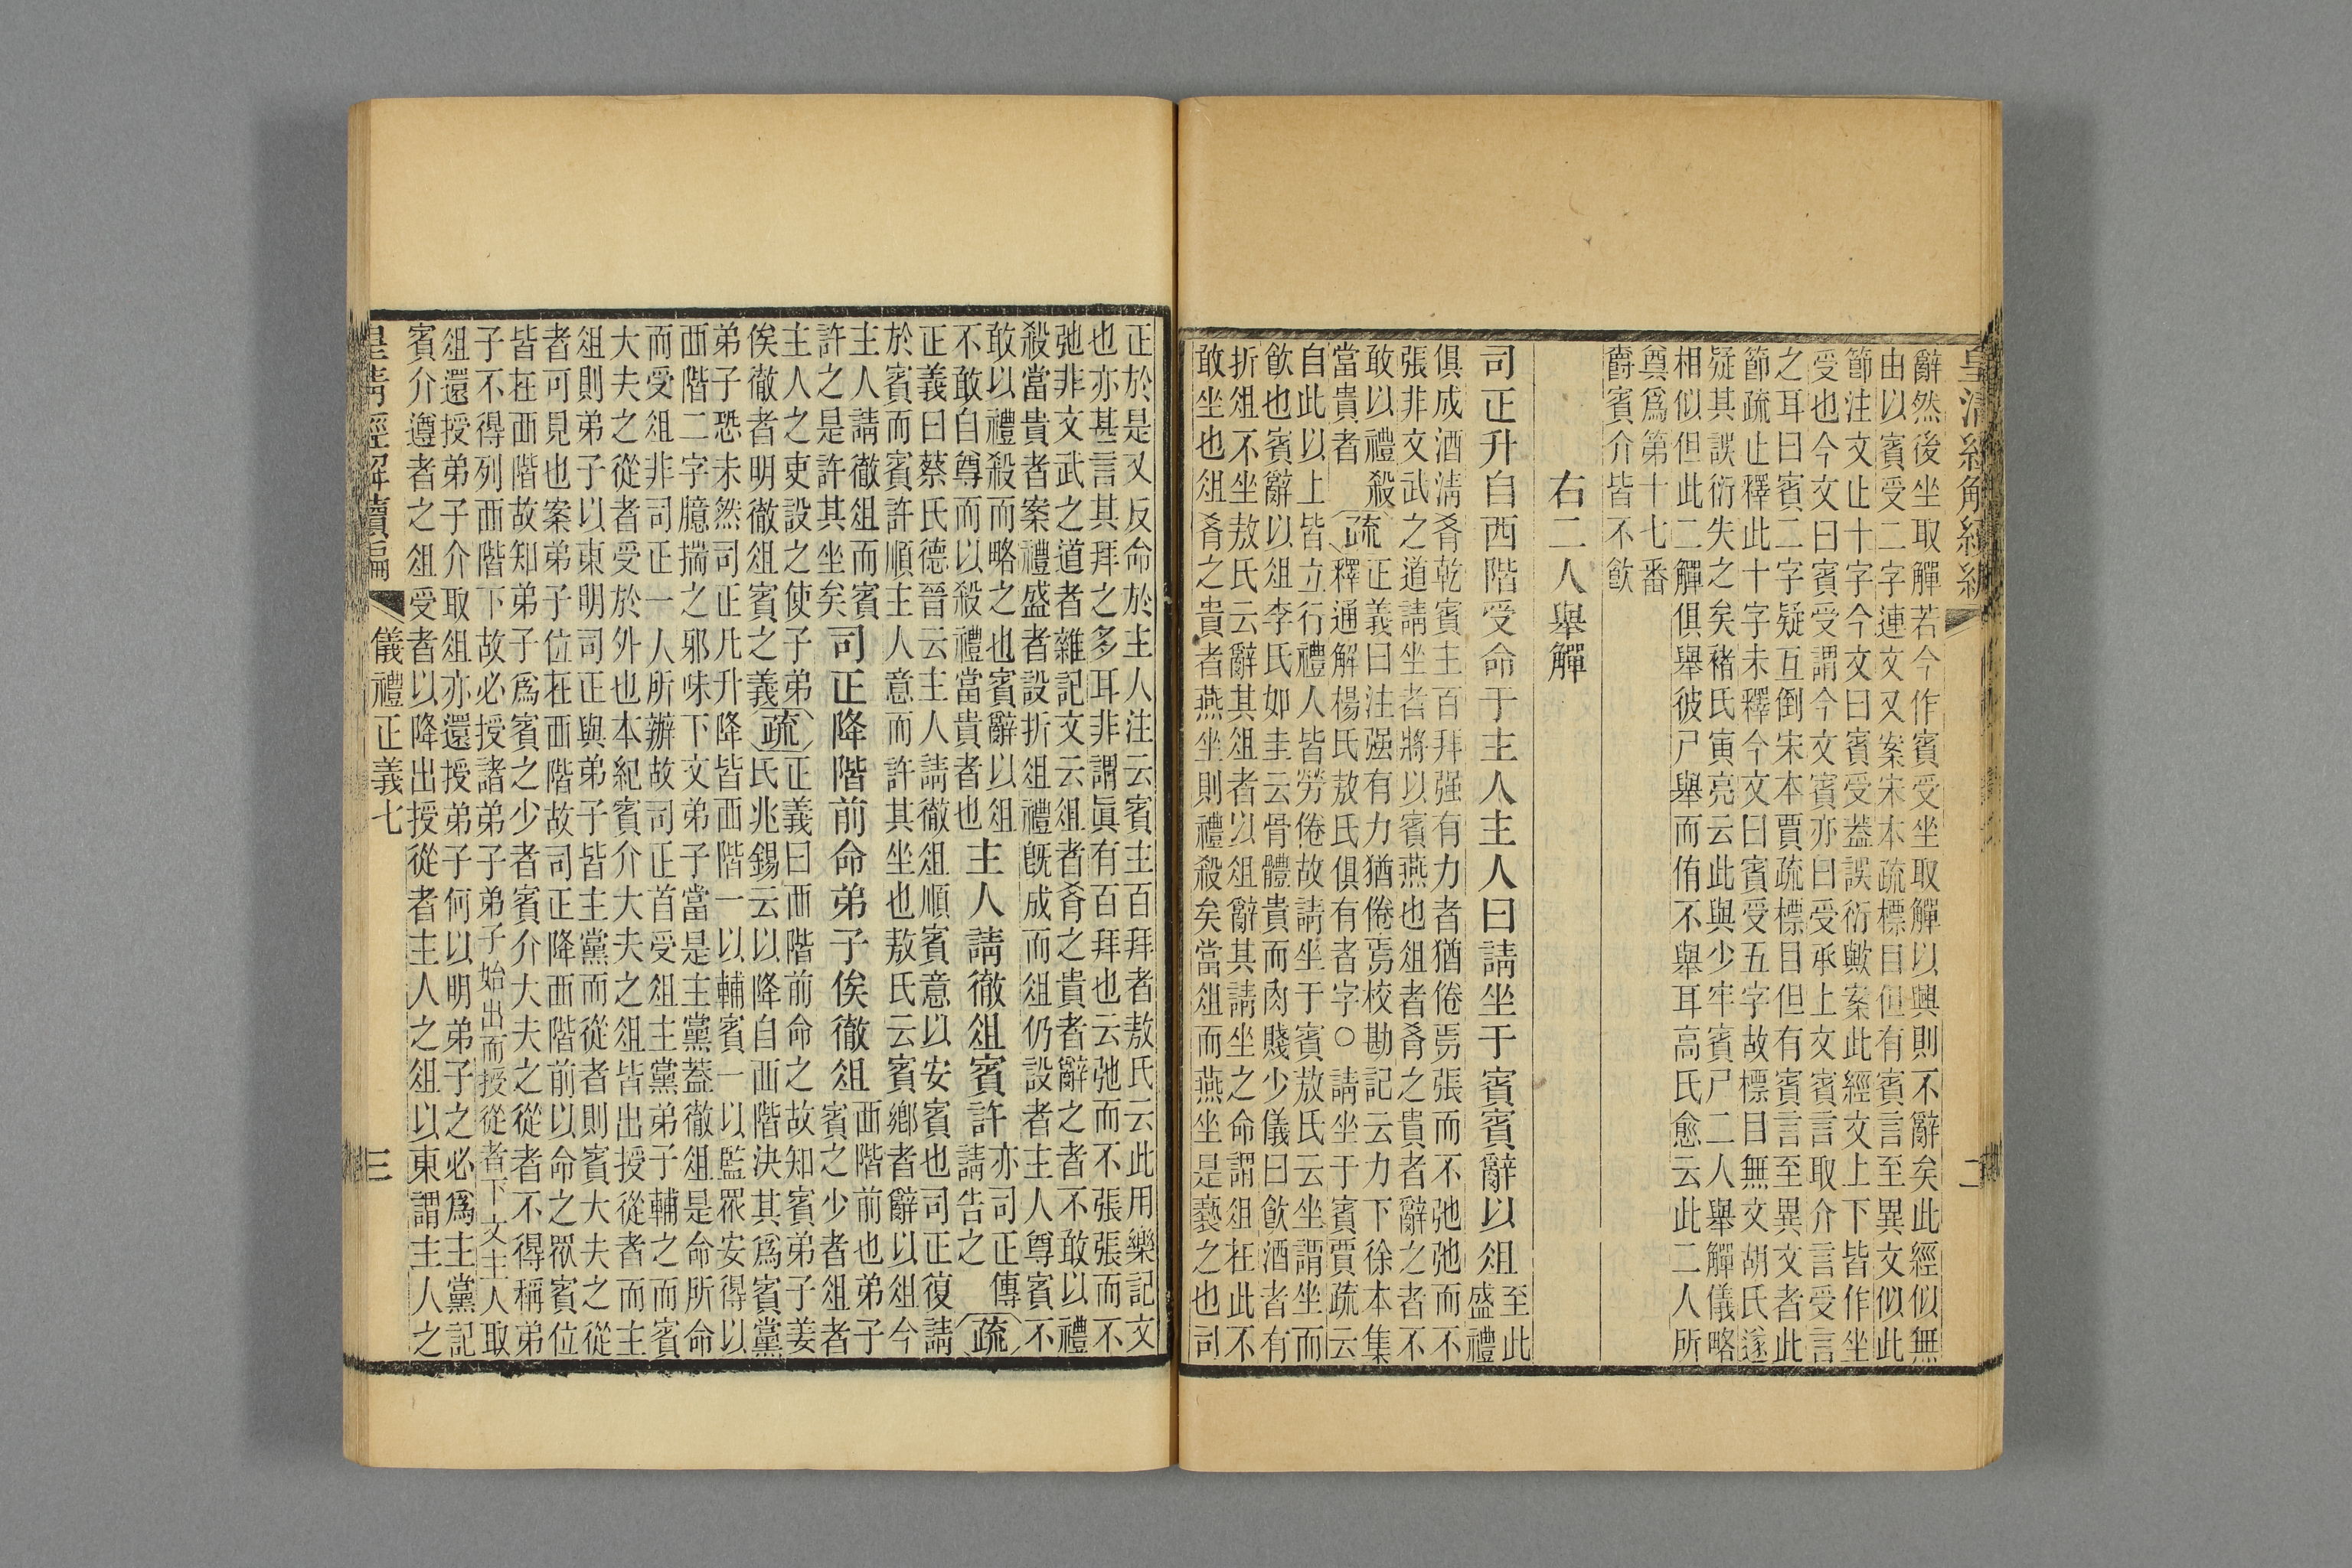 皇清經解續編
二
辭然後坐取觶若今作賓受坐取觶以興則不辭矣此經似無
由以賓受二字連文又案宋本疏標目但有賓言至異文似此
節注文止十字今文曰賓受葢誤衍歟案此經文上下皆作坐
受也今文曰賓受謂今文賓亦曰受承上文賓言取介言受言
之耳曰賓二字疑互倒宋本賈疏標目但有賓言至異文者此
節疏止釋此十字未釋今文曰賓受五字故標目無文胡氏遂
疑其誤衍失之矣褚氏寅亮云此與少牢賓尸二人舉觶儀略
相似但此二觶俱舉彼尸舉而侑不舉耳高氏愈云此二人所
奠爲第十七番
爵賓介皆不飮
右二人舉觶
司正升自西階受命于主人主人曰請坐于賓賓辭以俎
至此
盛禮
俱成酒淸肴乾賓主百拜强有力者猶倦焉張而不弛弛而不
張非文武之道請坐者將以賓燕也俎者肴之貴者辭之者不
敢以禮殺
當貴者
疏
正義曰注强有力猶倦焉校勘記云力下徐本集
釋通解楊氏敖氏俱有者字○請坐于賓賈疏云
自此以上皆立行禮人皆勞倦故請坐于賓敖氏云坐謂坐而
飮也賓辭以俎李氏如圭云骨體貴而肉賤少儀曰飮酒者有
折俎不坐敖氏云辭其俎者以俎辭其請坐之命謂俎在此不
敢坐也俎肴之貴者燕坐則禮殺矣當俎而燕坐是褻之也司
正於是又反命於主人注云賓主百拜者敖氏云此用樂記文
也亦甚言其拜之多耳非謂眞有百拜也云弛而不張張而不
弛非文武之道者雜記文云俎者肴之貴者辭之者不敢以禮
殺當貴者案禮盛者設折俎禮旣成而俎仍設者主人尊賓不
敢以禮殺而略之也賓辭以俎
不敢自尊而以殺禮當貴者也
主人請徹俎賓許
亦司正傳
請告之
疏
正義曰蔡氏德晉云主人請徹俎順賓意以安賓也司正復請
於賓而賓許順主人意而許其坐也敖氏云賓鄉者辭以俎今
主人請徹俎而賓
許之是許其坐矣
司正降階前命弟子俟徹俎
西階前也弟子
賓之少者俎者
主人之吏設之使子弟
俟徹者明徹俎賓之義
疏
正義曰西階前命之故知賓弟子姜
氏兆錫云以降自西階決其爲賓黨
弟子恐未然司正凡升降皆西階一以輔賓一以監衆安得以
西階二字臆揣之邪味下文弟子當是主黨葢徹俎是命所命
而受俎非司正一人所辦故司正首受俎主黨弟子輔之而賓
大夫之從者受於外也本紀賓介大夫之俎皆出授從者而主
俎則弟子以東明司正與弟子皆主黨而從者則賓大夫之從
者可見也案弟子位在西階故司正降西階前以命之衆賓位
皆在西階故知弟子爲賓之少者賓介大夫之從者不得稱弟
子不得列西階下故必授諸弟子弟子始出而授從者下文主人取
俎還授弟子介取俎亦還授弟子何以明弟子之必爲主黨記
賓介遵者之俎受者以降出授從者主人之俎以東謂主人之
皇淸經解續編
儀禮正義七
三